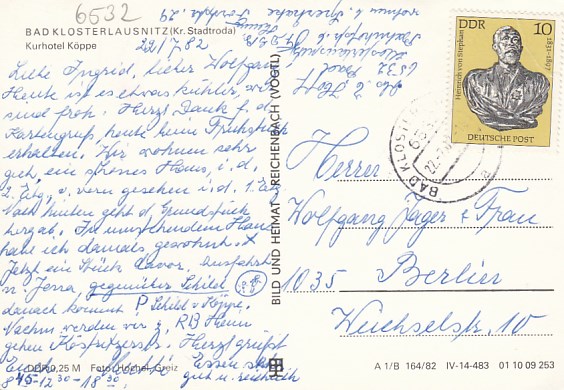 6532
BAD KLOSTERLAUSNITZ (Kr. Stadtroda)
Kurhotel Köppe
22/7.82
Liebe Ingrid, lieber Wolfgang
Heute ist es etwas kühler, wir
sind froh. Herzl. Dank f. d.
Kartengruß, heute beim Frühstück
erhalten. Wir wohnen sehr
gut, ein großes Haus, i. d.
2. Etg., v. vorn gesehen i. d. 1. Etg.
Nach hinten geht d. Grundstück
bergab. In umstehendem Haus
habe ich damals gewohnt.
Jetzt ein Stück davor. Ausfahrt
n Jena, gegenüber Schild
danach kommt P Schild + Köppe.
Nachm. werden wir z. RB Heim
gehen. Herzl. grüßt
Euch
Essen sehr
gut u. reichlich
8 45 - 12 30 - 18 30
DDR 0,25 M Foto Höchel, Greiz
BILD UND HEIMAT REICHENBACH (VOGTL)
6533 Bad
Klosterlausnitz
DDR 10
Heinrich von Stephan
1831-1897
DEUTSCHE POST
BAD KLOS
Herrn
Wolfgang Jäger + Frau
1035 Berlin
Weichselstr. 10
A 1/B 164/82 IV-14-483 01 10 09 253